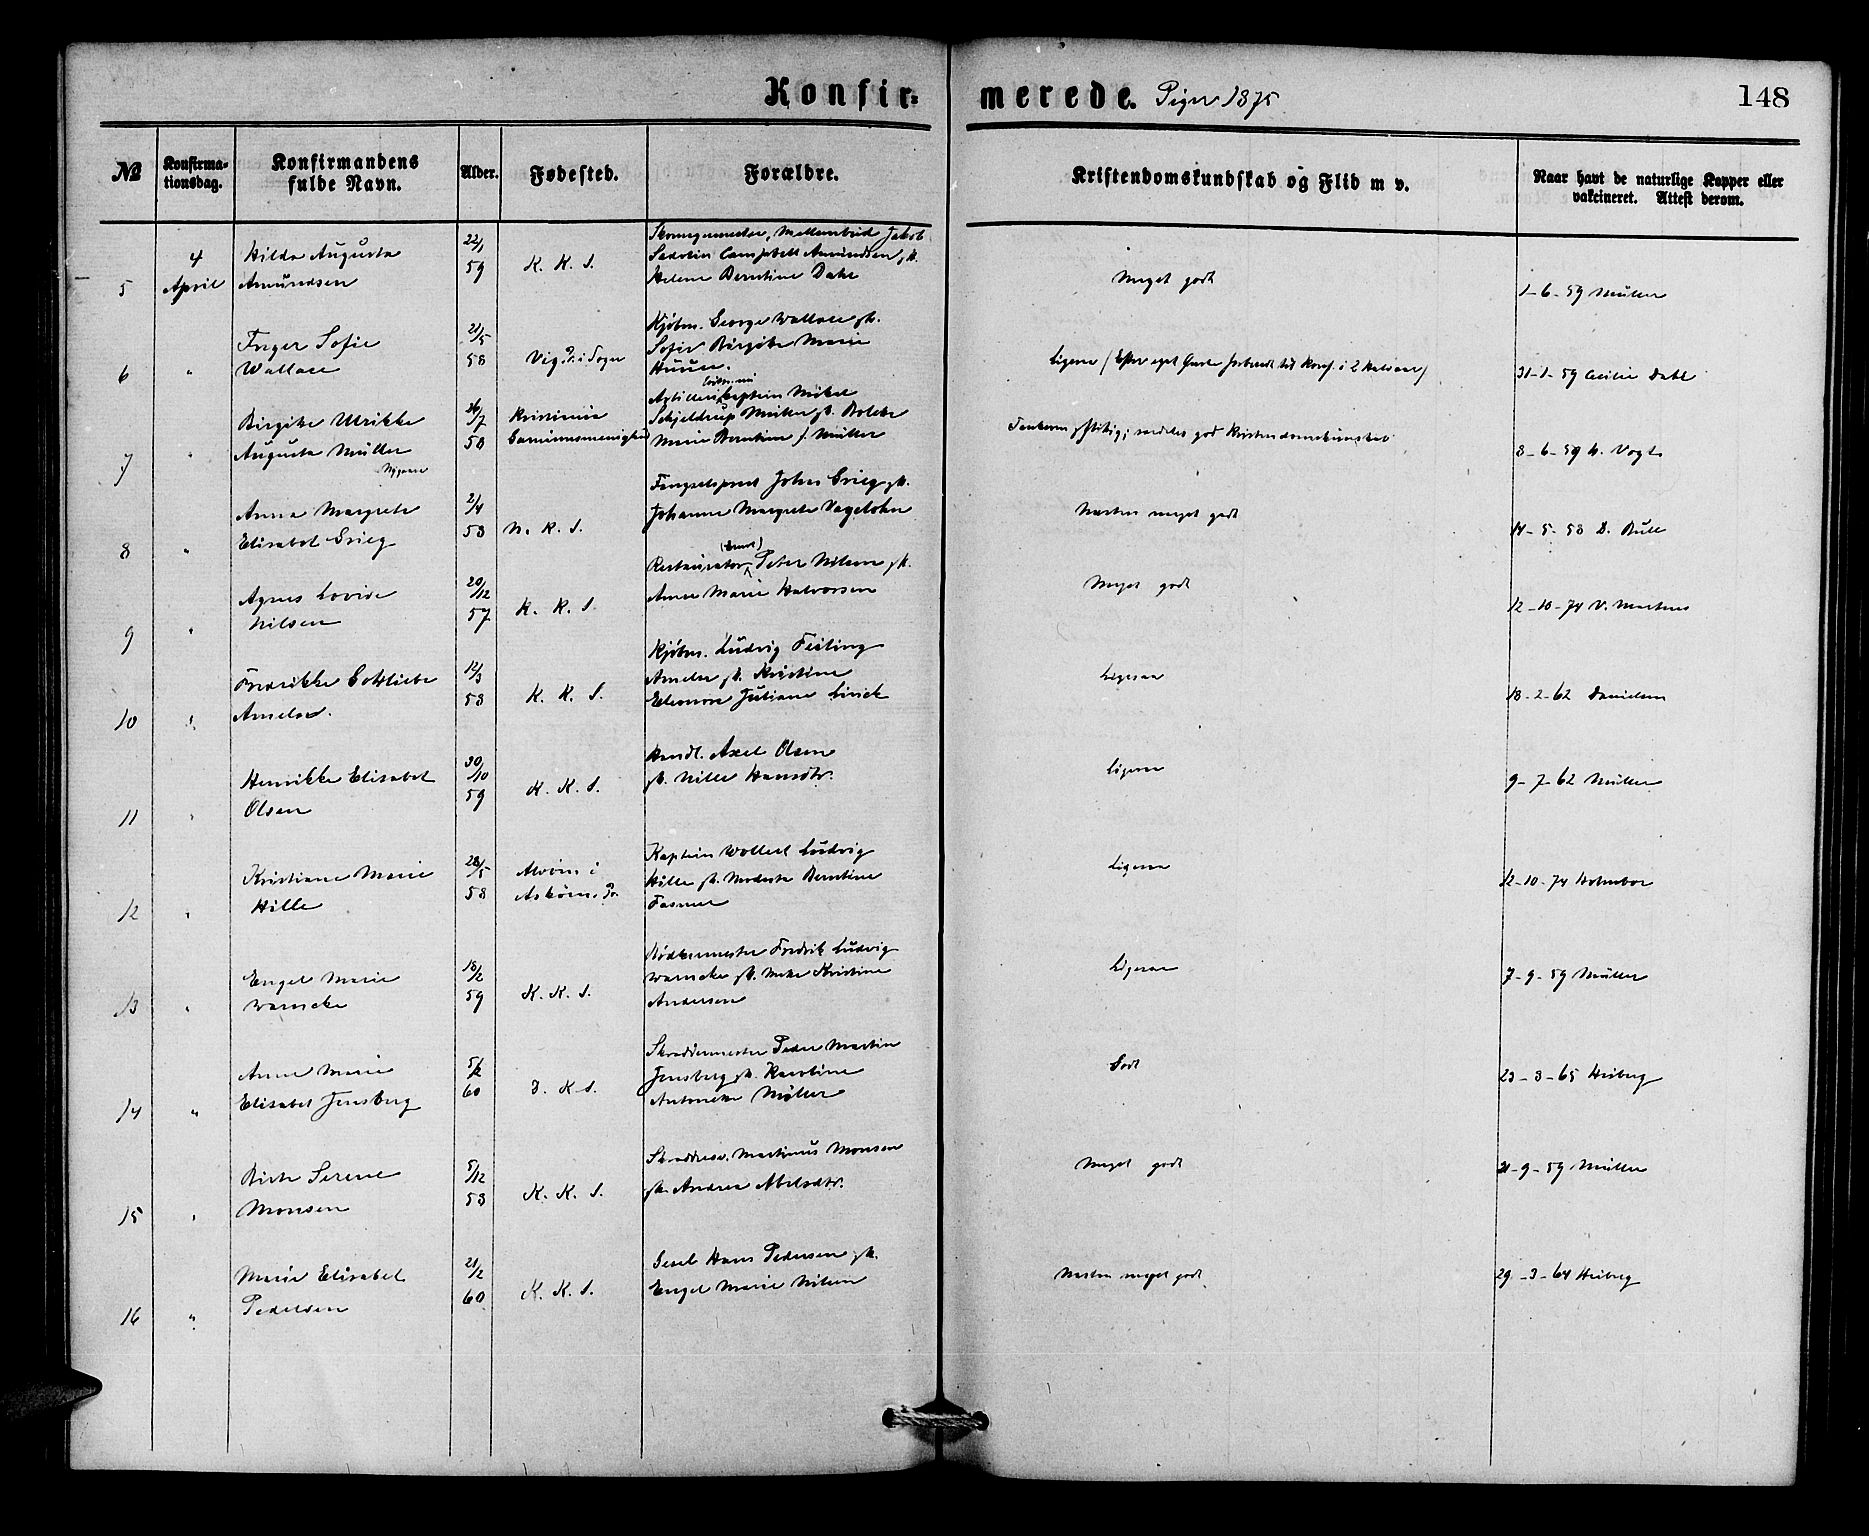 Konfir=
merede. Piger 1875
148
№
Konfirma=
tionsdag.
Konfirmandens
fulde Navn.
Alder.
Fødested.
Forældre.
Kristendomskundskab og Flid m v.
Naar havt de naturlige Kopper eller
vakcineret. Attest derom.
5
4
April
Hilda Augusta
Amundsen
22/1
59
K. K. S.
Jakob
Campbell Amundsen
Helene Berntine Dahl
Meget godt
1-6-59 Müller
6
"
Inger Sofie
Wallace
21/5
58
Vig Pr. i Sogn
Kjøbm. George Wallace gk.
Sofie Birgitte Marie
Ligesaa
31-1-59 Cecilie Dahl
7
"
Birgitte Ulrikke
Augusta Müller
26/7
58
Kristiania
Garnisonsmenighed
Artilleri Kaptein Mikal
Schjelderup Müller gk.
Marie Berntine f. Müller
god
8-6-59 Vogt
8
"
Anna Margrete
Elisabet Grieg
2/4
58
N. K. S.
John Grieg gk.
Johanne Margrete
Næsten meget godt
14-5-58 D. Bull
9
"
Agnes Lovise
Nilsen
20/12
57
K. K. S.
Restauratør Peter Nilsen gk.
Anne Marie Halvorsen
Meget godt
12-10-74 V. Martens
10
"
Fredrikke Gottliebe
Ameln.
12/3
58
K. K. S.
Kjøbm. Ludvig
Ameln gk. Kristine
Eleonore Juliane
Ligesaa
18-2-62 Danielsen
11
"
Henrikke Elisabet
Olsen
30/10
59
K. K. S.
Handl. Axel Olsen
gk. Nille Hansdtr.
Ligesaa
9-7-62 Müller
12
"
Kristiane Marie
Hille
28/5
58
i
Askøens Pr.
Kaptein Wollert Ludvig
Hille gk. Modesta Berntine
Fasmer
Ligesaa
12-10-74 Holmboe
13
"
Engel Marie
Warncke
18/2
59
K. K. S.
Bødkermester Fredrik Ludvig
Warncke gk. Kristine
Andersen
Ligesaa
7-9-59 Müller
14
"
Anne Marie
Elisabet Jensberg
5/2
60
D. K. S.
Skreddermester Peder Martin
Jensberg gk. Karoline
Antonette Møller
Godt
23-3-65 Heiberg
15
"
Birte Serene
Monsen
5/12
58
K. K. S.
Martinus Monsen
gk. Andrea Abelsdtr.
Meget godt
21-9-59 Müller
16
"
Marie Elisabet
Pedersen
21/2
60
K. K. S.
Hans Pedersen gk.
Engel Marie Nilsen
Næsten meget godt
29-3-64 Heiberg